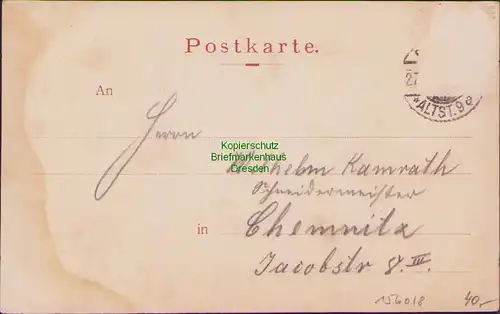 Postkarte.
27
*ALTST. 9e
An
Herrn
Kopierschutz
Briefmarkenhaus
Dresden
Wilhelm Kamrath
Schneidermeister
in Chemnitz
Jacobstr 8. III.
156018
40,-